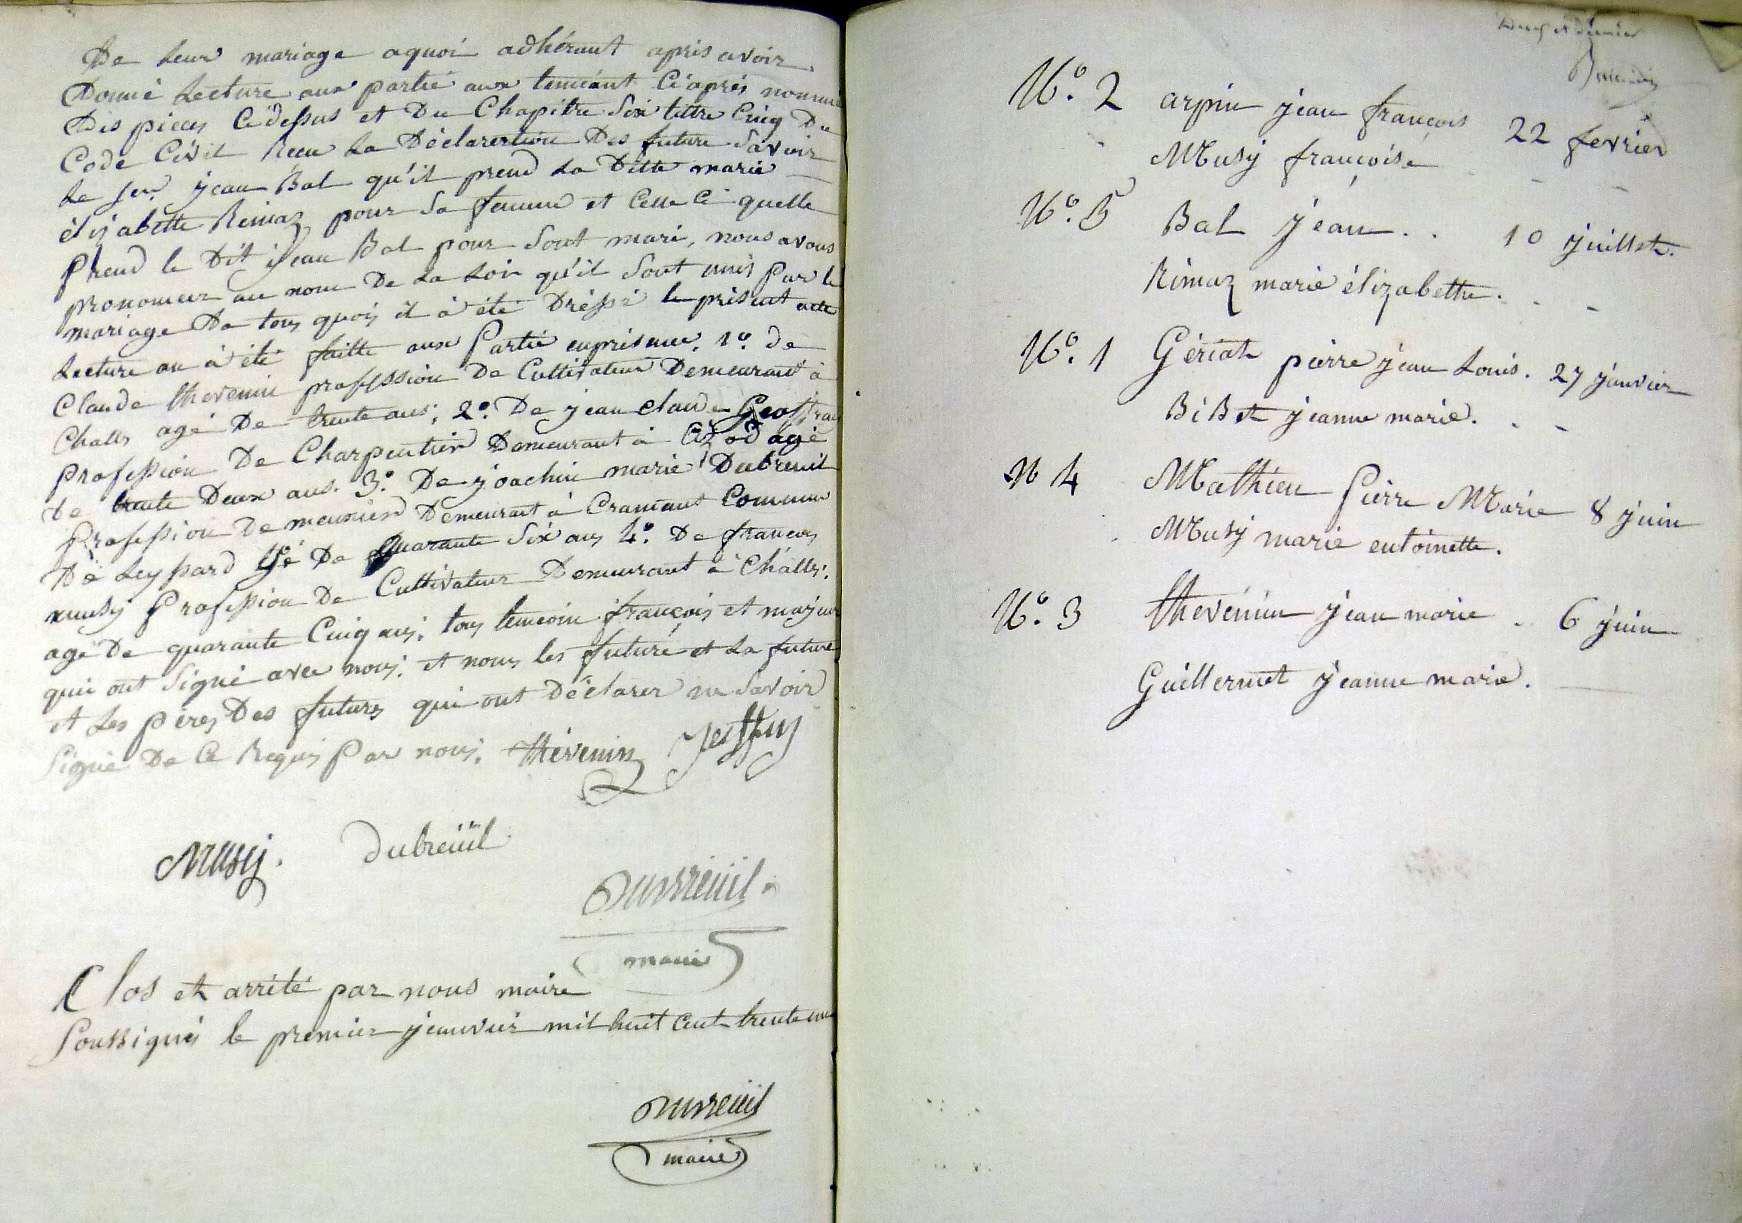 De leur mariage aquoi adhérant après avoir
Donné Lecture aux partié aux temeant Ciaprés nommé
Dis pieces Cidessus et Du Chapitre Six tittre Cinq Du
Code Civil Recu La Déclarertion Des future Savoir
Le Ser. jean Bal qu'il prend La Ditte marie
élizabette Rimaz pour Sa femme et Celle Ci quelle
prend le Dit jean Bal pour Sont mari, nous avons
prononcer au nom De La Loir qu'il Sont unis Par le
mariage De tous quois il à été Dréssé le présent acte
Lecture an à été faitte aux Partié enprésence. 1º. de
Claude thevenin profession De Cultivateur Demeurant à
Challs agé De trente ans; 2º. De jean claude Geoffray
Profession De Charpentier Demeurant à Cizod agé
De trente Deux ans. 3º. De joachin marie Dubreuil
Profession De meunier Demeurant à Cramant Commune
De Leyssard agé De Quarante Six ans 4º. De francois
musy Profession De Cultivateur Demeurant à Challs.
agé De quarante Cinq ans; tous temoin françois et majeur
qui ont Signé avec nous. et nous les futuré et La future
et Les péres Des futurs qui ont Déclarer ne Savoir
Signé De Ce Requis Par nous. thévenin Jeoffray
Musy. dubreüil
Dubreüil.
maire
Clos et arrêté par nous maire
Soussignés le premier jeanvier mil huit cent trente un
Dubreüil
maire
et dernier
Nº. 2 arpin jean françois 22 fevrier
Musy françoise
Nº. 5 Bal jean . . 10 juillet.
Rimaz marie élizabette . . -
Nº. 1 Gériat pierre jean Louis. 27 janvier
BiBet jeanne marie. . -
N 4 Mathieu Pierre Marie 8 juin
Musy marie entoinette.
Nº. 3 thevenin jean marie . 6 juin
Guillermet jeanne marie.